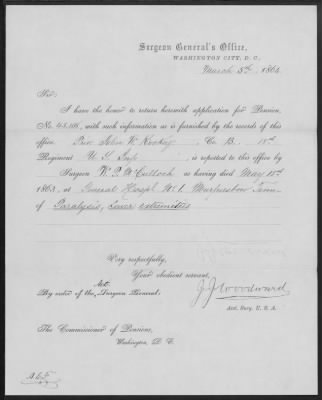 Surgeon General's Office,
WASHINGTON CITY, D. C.
March 5th, 1864
Sir:
I have the honor to return herewith application for Pension,
No. with such information as is furnished by the records of this
office. Priv John W. Co. B. 18th
Regiment U. S. Inf., is reported to this office by
Surgeon W. P. McCulloch as having died May 18th
1863, at General Hosp'l No. 1. Murfreesboro Tenn
of Paralysis, lower extremities
Very respectfully,
Your obedient servant,
By order of the Act. Surgeon General:
J. J. Woodward
Asst. Surg. U. S. A.
The Commissioner of Pensions,
Washington, D. C.